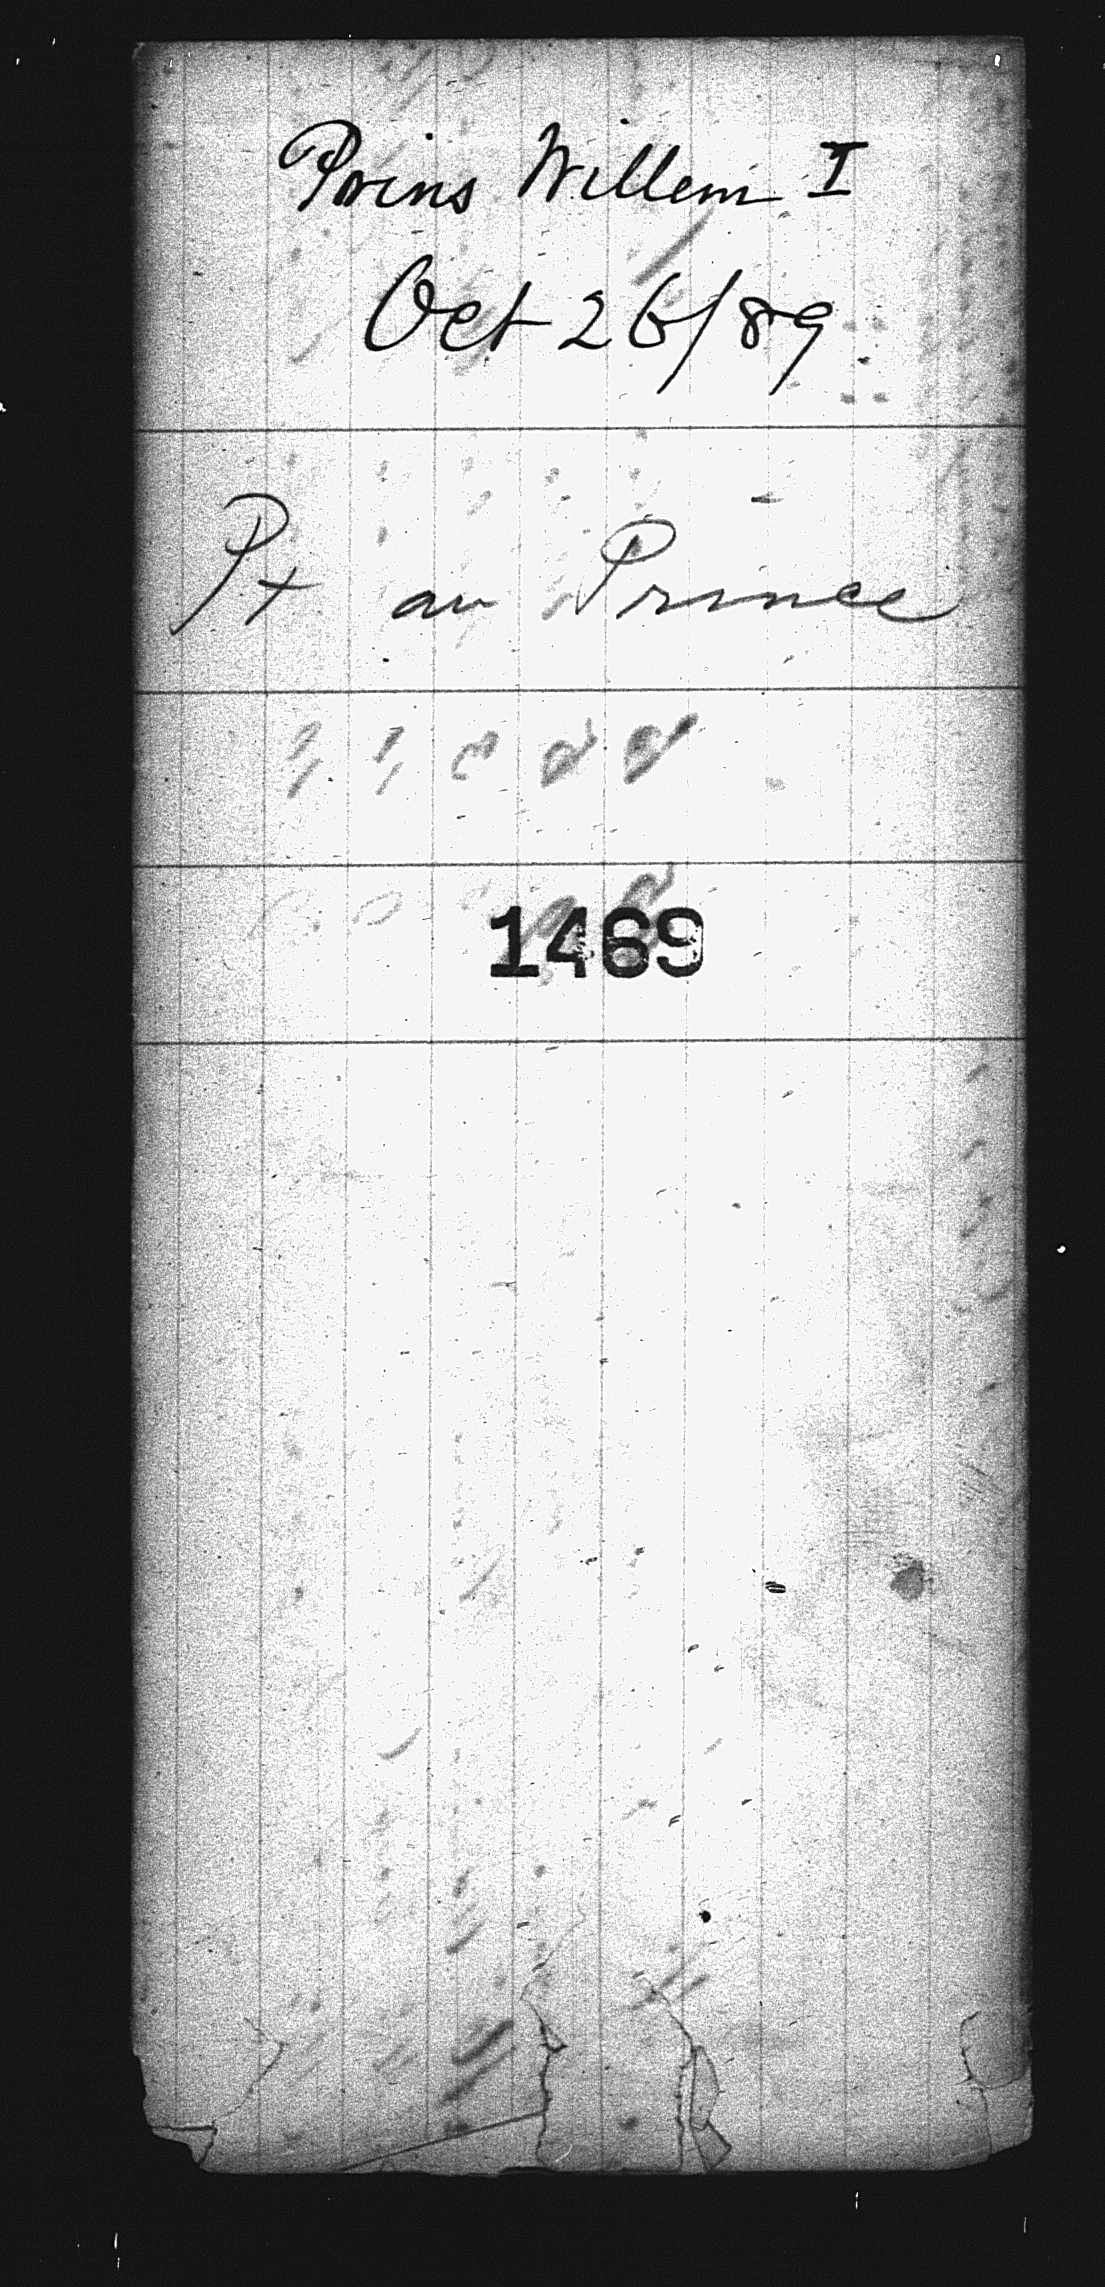 Prins Willem I
Oct 26/89
Pt au Prince
1469